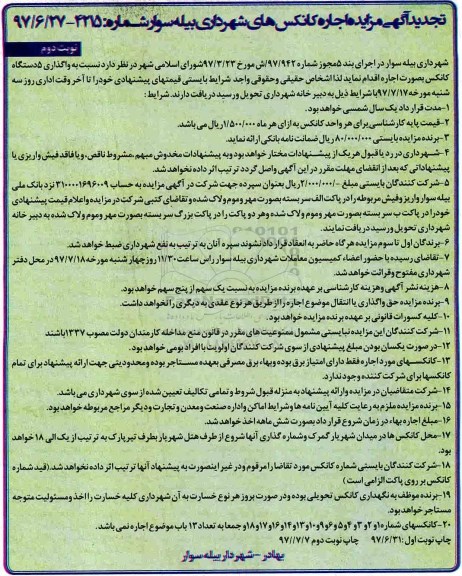 تجدید آگهی مزایده اجاره کانکس های شهرداری بیله سوار شماره: ۴۲۱۵-۹۷/۶/۲۷
نوبت دوم
شهرداری بیله سوار در اجرای بند ۵ مجوز شماره ۹۷/۹۴۲/ش مورخ ۹۷/۳/۲۳ شورای اسلامی شهر در نظر دارد نسبت به واگذاری ۵ دستگاه
کانکس بصورت اجاره اقدام نماید لذا اشخاص حقیقی وحقوقی واجد شرایط بایستی قیمتهای پیشنهادی خود را تا آخر وقت اداری روز سه
شنبه مورخه ۹۷/۷/۱۷ با شرایط ذیل به دبیر خانه شهرداری تحویل و رسید دریافت دارند. شرایط :
۱-مدت قرار داد یک سال شمسی خواهد بود.
۲-قیمت پایه کارشناسی برای هر واحد کانکس به ازای هر ماه ۱/۵۰۰/۰۰۰ ریال می باشد.
۳-برنده مزایده بایستی ۸۰/۰۰۰/۰۰۰ ریال ضمانت نامه بانکی ارائه نماید.
۴-شهرداری در رد یا قبول هر یک از پیشنهادات مختار خواهد بود و به پیشنهادات مخدوش مبهم ،مشروط ناقص ، و یا فاقد فیش واریزی یا
پیشنهاداتی که بعد از انقضای مهلت مقرر در این آگهی واصل گردد ترتیب اثر داده نخواهد شد.
۵-شرکت کنندگان بایستی مبلغ ۲/۰۰۰/۰۰۰ ریال بعنوان سپرده جهت شرکت در آگهی مزایده به حساب ۳۱۰۰۰۰۱۶۹۶۰۰۹ نزد بانک ملی
بیله سوار واریز و فیش مربوطه را در پاکت الف سر بسته بصورت مهر وموم ولاک شده و تقاضای کتبی شرکت در مزایده و اعلام قیمت پیشنهادی
خود را در پاکت ب سر بسته بصورت مهر وموم ولاک شده و هر دو پاکت را در پاکت بزرگ سر بسته بصورت مهر وموم ولاک شده به دبیر خانه
شهرداری تحویل و رسید دریافت نمایند.
۶-برندگان اول تا سوم مزایده هر گاه حاضر به انعقاد قرار داد نشوند سپره آنان به ترتیب به نفع شهرداری ضبط خواهد شد.
۷-تقاضای رسیده با حضور اعضاء کمیسیون معاملات شهرداری بیله سوار راس ساعت ۱۱/۳۰ روز چهار شنبه مورخه ۹۷/۷/۱۸ در محل دفتر
شهرداری مفتوح و قرائت خواهد شد.
۸-هزینه نشر آگهی وهزینه کارشناسی بر عهده برنده مزایده به نسبت یک سهم از پنج سهم خواهد بود.
۹-برنده مزایده حق واگذاری یا انتقال موضوع اجاره را از طریق هر نوع عقدی به دیگری را نخواهد داشت.
۱۰-کلیه کسورات قانونی بر عهده برنده مزایده خواهد بود.
۱۱-شرکت کنندگان این مزایده نبایستی مشمول ممنوعیت های مقرر در قانون منع مداخله کارمندان دولت مصوب ۱۳۳۷ باشند
۱۲-در صورت یکسان بودن مبلغ پیشنهادی از سوی شرکت کنندگان اولویت با افراد بومی خواهد بود.
۱۳-کانکسهای مورد اجاره فقط دارای امتیاز برق بوده و بهاء برق مصرفی بعهده مستاجر بوده و محدودیتی جهت ارائه پیشنهاد برای تمام
کانکسها برای شرکت کننده وجود ندارد.
۱۴-شرکت متقاضیان در مزایده و ارائه پیشنهاد به منزله قبول شروط و تمامی تکالیف تعیین شده از سوی شهرداری می باشد.
۱۵-برنده مزایده ملزم به رعایت کلیه آیین نامه ها وشرایط اماکن واداره صنعت و معدن و تجارت و دیگر مراجع مربوطه خواهد بود.
۱۶-مبلغ اجاره بهاء در زمان شروع قرار داد بصورت شش ماهه اخذ خواهد شد.
۱۷-محل کانکس ها در میدان شهریار گمرک و شماره گذاری آنها شروع از طرف هتل شهریار بطرف تیر پارک به ترتیب از یک الی ۱۸ خواهد
بود.
۱۸-شرکت کنندگان بایستی شماره کانکس مورد تقاضا را مرقوم و در غیر اینصورت به پیشنهاد آنها ترتیب اثر داده نخواهد شد.(قید شماره
کانکس بر روی پاکت الزامی است)
۱۹-برنده موظف به نگهداری کانکس تحویلی بوده و در صورت بروز هر نوع خسارت به آن شهرداری کلیه خسارت را اخذ و مسئولیت متوجه
مستاجر خواهد بود.
۲۰-کانکسهای شماره ۱ و ۲ و ۳ و ۴ و ۵ و ۶ و ۹ و ۱۰ و ۱۳ و ۱۴ و ۱۶ و ۱۷ و ۱۸ و جمعا به تعداد ۱۳ باب موضوع اجاره نمی باشد.
چاپ نوبت اول : ۹۷/۶/۳۱ چاپ نوبت دوم ۹۷/۷/۷
بهادر - شهردار بیله سوار